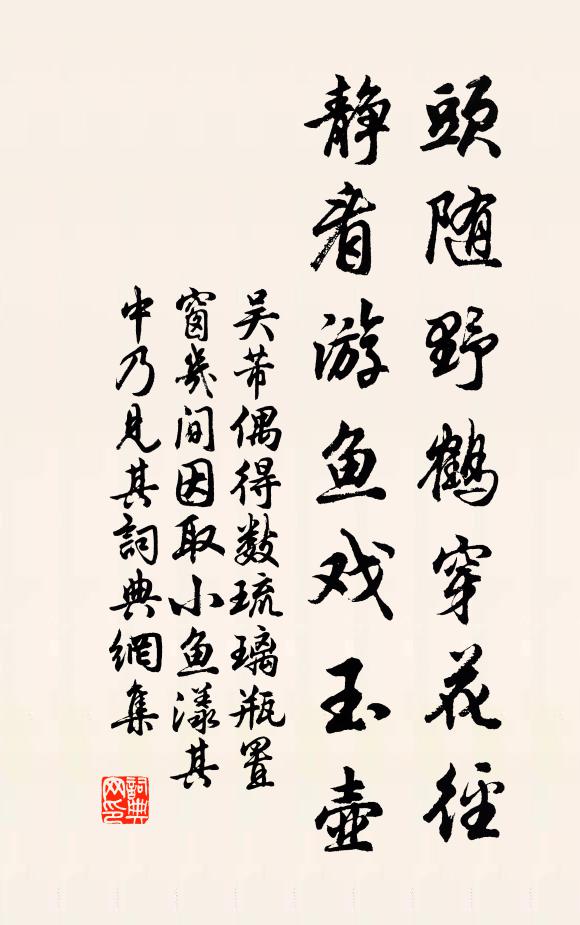 頭随野鹤穿花径
静看游鱼戏玉壶
吴芾偶得数琉璃瓶置
窗几间因取小鱼漾其
中乃见其詞典網集
詞典網印